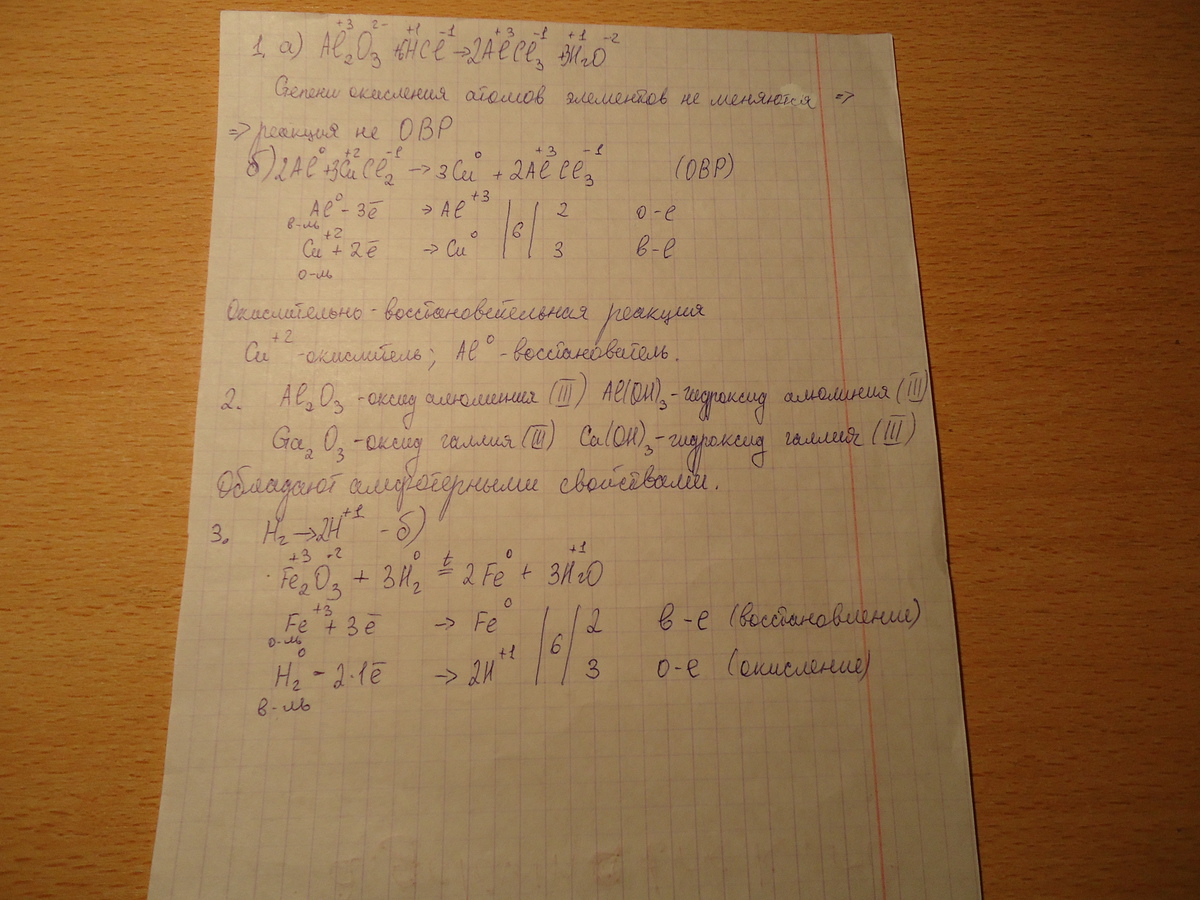 1. а) Al₂⁺³O₃²⁻ + 6H⁺¹Cl⁻¹ → 2Al⁺³Cl₃⁻¹ + 3H₂⁺¹O⁻²
Степени окисления атомов элементов не меняются =>
=> реакция не ОВР
б) 2Al⁰ + 3Cu⁺²Cl₂⁻¹ → 3Cu⁰ + 2Al⁺³Cl₃⁻¹ (ОВР)
Al⁰ - 3ē → Al⁺³ | 6 | 2 о-е
в-ль
Cu⁺² + 2ē → Cu⁰ | | 3 в-е
о-ль
Окислительно-восстановительная реакция
Cu⁺² - окислитель; Al⁰ - восстановитель.
2. Al₂O₃ - оксид алюминия (III) Al(OH)₃ - гидроксид алюминия (III)
Ga₂O₃ - оксид галлия (III) Ga(OH)₃ - гидроксид галлия (III)
Обладают амфотерными свойствами.
3. H₂ → 2H⁺¹ - б)
Fe₂⁺³O₃⁻² + 3H₂⁰ =ᵗ 2Fe⁰ + 3H₂⁺¹O
Fe⁺³ + 3ē → Fe⁰ | 6 | 2 в-е (восстановление)
о-ль
H₂⁰ - 2·1ē → 2H⁺¹ | | 3 о-е (окисление)
в-ль